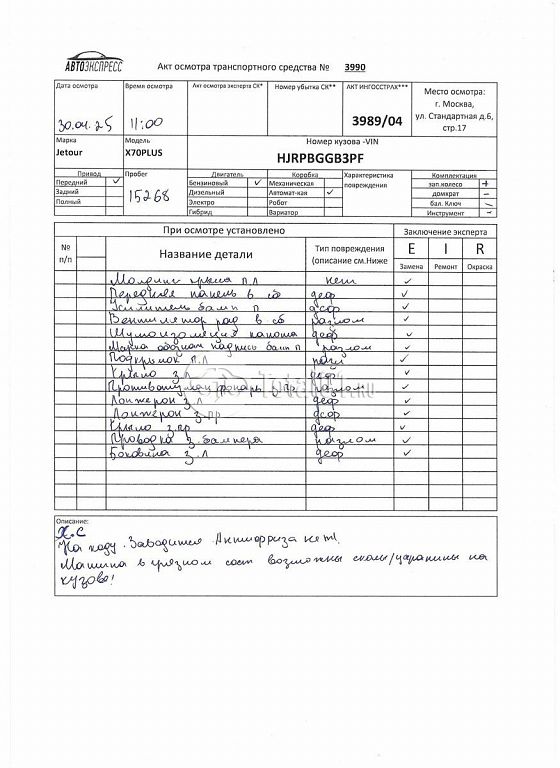 АВТОЭКСПРЕСС
Акт осмотра транспортного средства № 3990
Дата осмотра Время осмотра Акт осмотра эксперта СК* Номер убытка СК** АКТ ИНГОССТРАХ*** Место осмотра:
г. Москва,
30.04.25 11:00 3989/04 ул. Стандартная д.6,
стр.17
Марка Модель Номер кузова -VIN
Jetour X70PLUS HJRPBGGB3PF
Привод Пробег Двигатель Коробка Характеристика Комплектация
Передний ✓ 15268 Бензиновый ✓ Механическая повреждения зап.колесо +
Задний Дизельный Автомат-кая ✓ домкрат –
Полный Электро Робот бал. Ключ –
Гибрид Вариатор Инструмент –
При осмотре установлено Заключение эксперта
№ Название детали Тип повреждения E I R
п/п (описание см.Ниже Замена Ремонт Окраска
Молдинг крыла п л нет ✓
Передняя панель в сб деф ✓
Усилитель бамп п деф ✓
Вентилятор рад в сб разлом ✓
Шумоизоляция капота деф ✓
Марка надпись бамп п разлом ✓
Подкрылок п.л ✓
Крыло з.л деф ✓
Противотуман фонарь з пр разлом ✓
Лонжерон з.л деф ✓
Лонжерон з.пр деф ✓
Крыло з.пр деф ✓
Проводка з.бампера разлом ✓
Боковина з.л деф ✓
Описание:
Х.С
На ходу. Заводится. Антифриза нет.
Машина в грязном сост возможны сколы/царапины на
кузове!